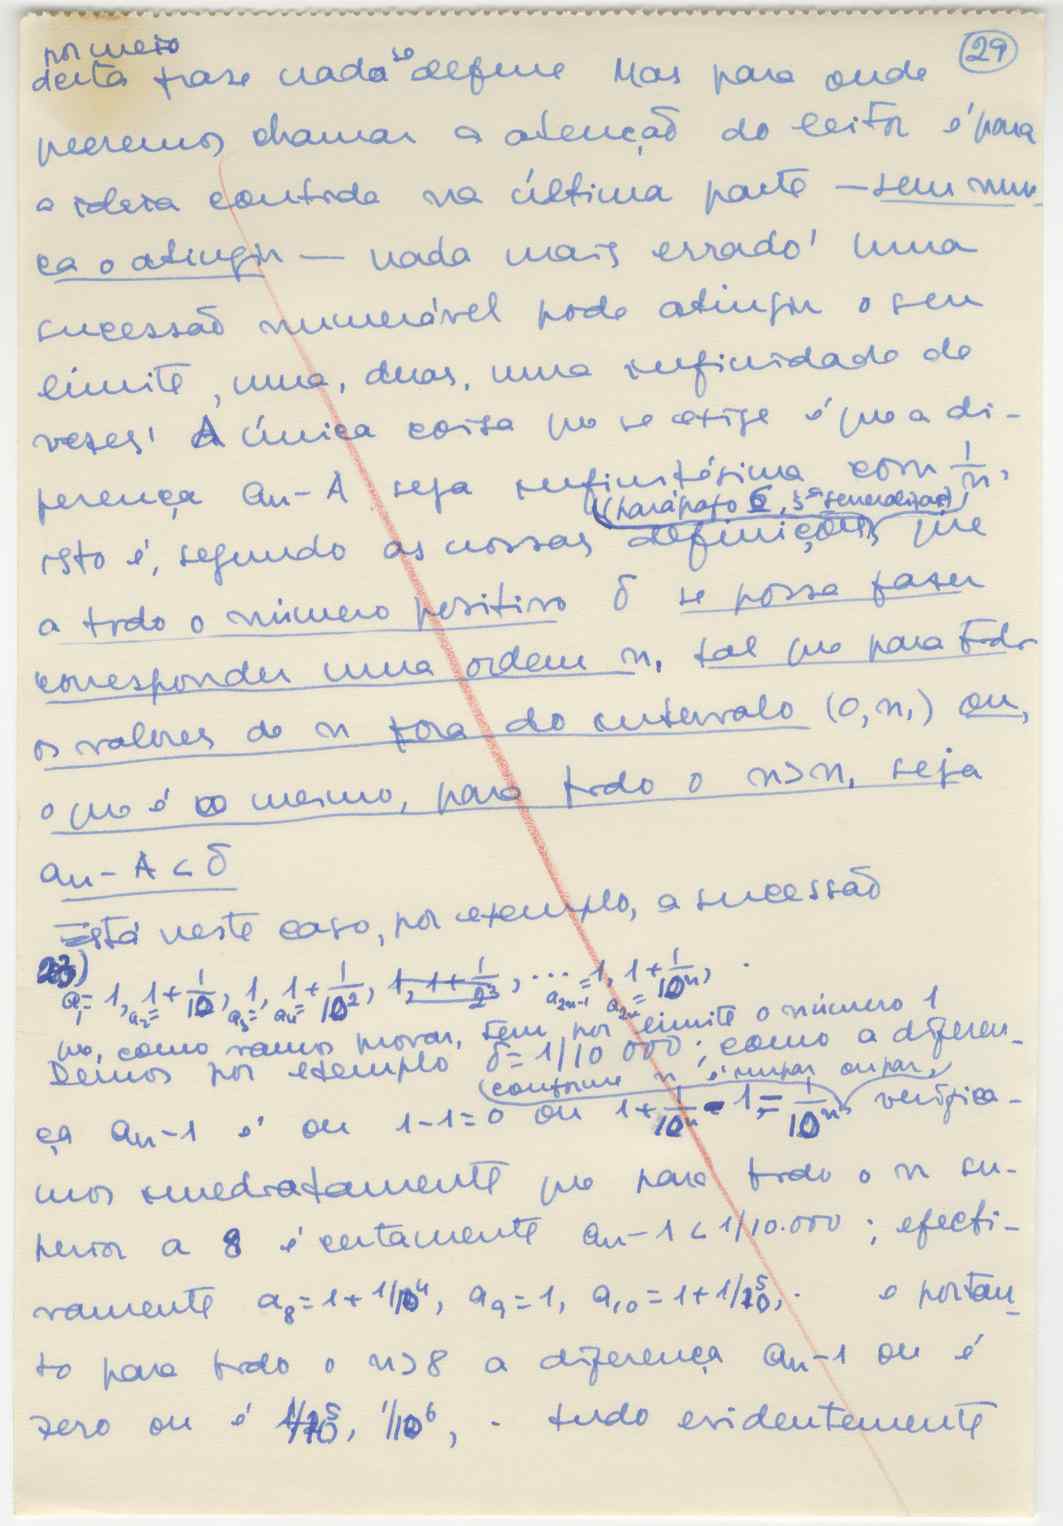 29
por meio
desta frase nada se define Mas para onde
queremos chamar a atenção do leitor é para
a ideia contida na última parte — sem nun-
ca o atingir — nada mais errado! uma
sucessão numerável pode atingir o seu
limite, uma, duas, uma infinidade de
vezes! A única coisa que se exige é que a di-
ferença an - A seja infinitésima com 1/n,
(parágrafo 6, 3ª generalização)
isto é, segundo as nossas definições, que
a todo o número positivo δ se possa fazer
corresponder uma ordem n₁ tal que para todos
os valores de n fora do intervalo (0, n₁) ou,
o que é o mesmo, para todo o n>n₁ seja
an - A < δ
Está neste caso, por exemplo, a sucessão
23)
a₁=1, a₂=1+1/10, a₃=1, a₄=1+1/10², 1, 1+1/2³, ... a2n-1=1, a2n=1+1/10ⁿ, .
que, como vamos provar, tem por limite o número 1
Demos por exemplo δ=1/10 000; como a diferen-
(conforme n é ímpar ou par)
ça an-1 é ou 1-1=0 ou 1+1/10ⁿ - 1 = 1/10ⁿ, verifica-
mos imediatamente que para todo o n su-
perior a 8 é certamente an-1 < 1/10.000; efecti-
vamente a₈=1+1/10⁴, a₉=1, a₁₀=1+1/10⁵, . e portan-
to para todo o n>8 a diferença an-1 ou é
zero ou é 1/10⁵, 1/10⁶, . tudo evidentemente